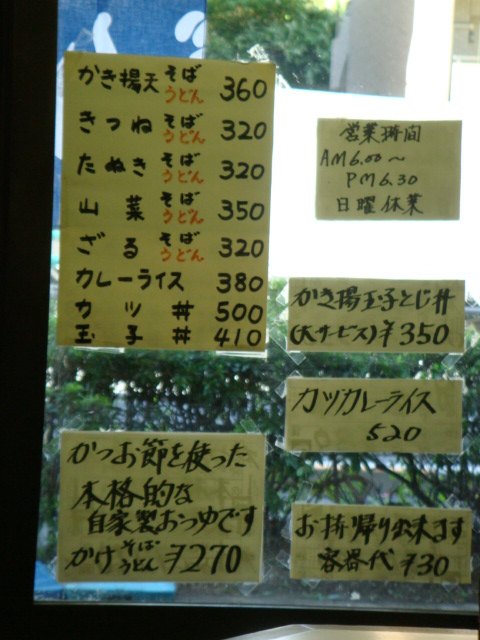 かき揚天 そば うどん 360
きつね そば うどん 320
たぬき そば うどん 320
山菜 そば うどん 350
ざる そば うどん 320
カレーライス 380
カツ丼 500
玉子丼 410
営業時間
AM6.00〜
PM6.30
日曜休業
かき揚玉子とじ丼
(大サービス)¥350
カツカレーライス
520
かつお節を使った
本格的な
自家製おつゆです
かけ そば うどん ¥270
お持帰り出来ます
容器代 ¥30